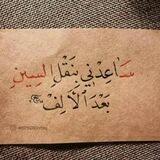 سَاعِدْنِي بِنَقْلِ السِّينِ
بَعْدَ الْأَلِفْ